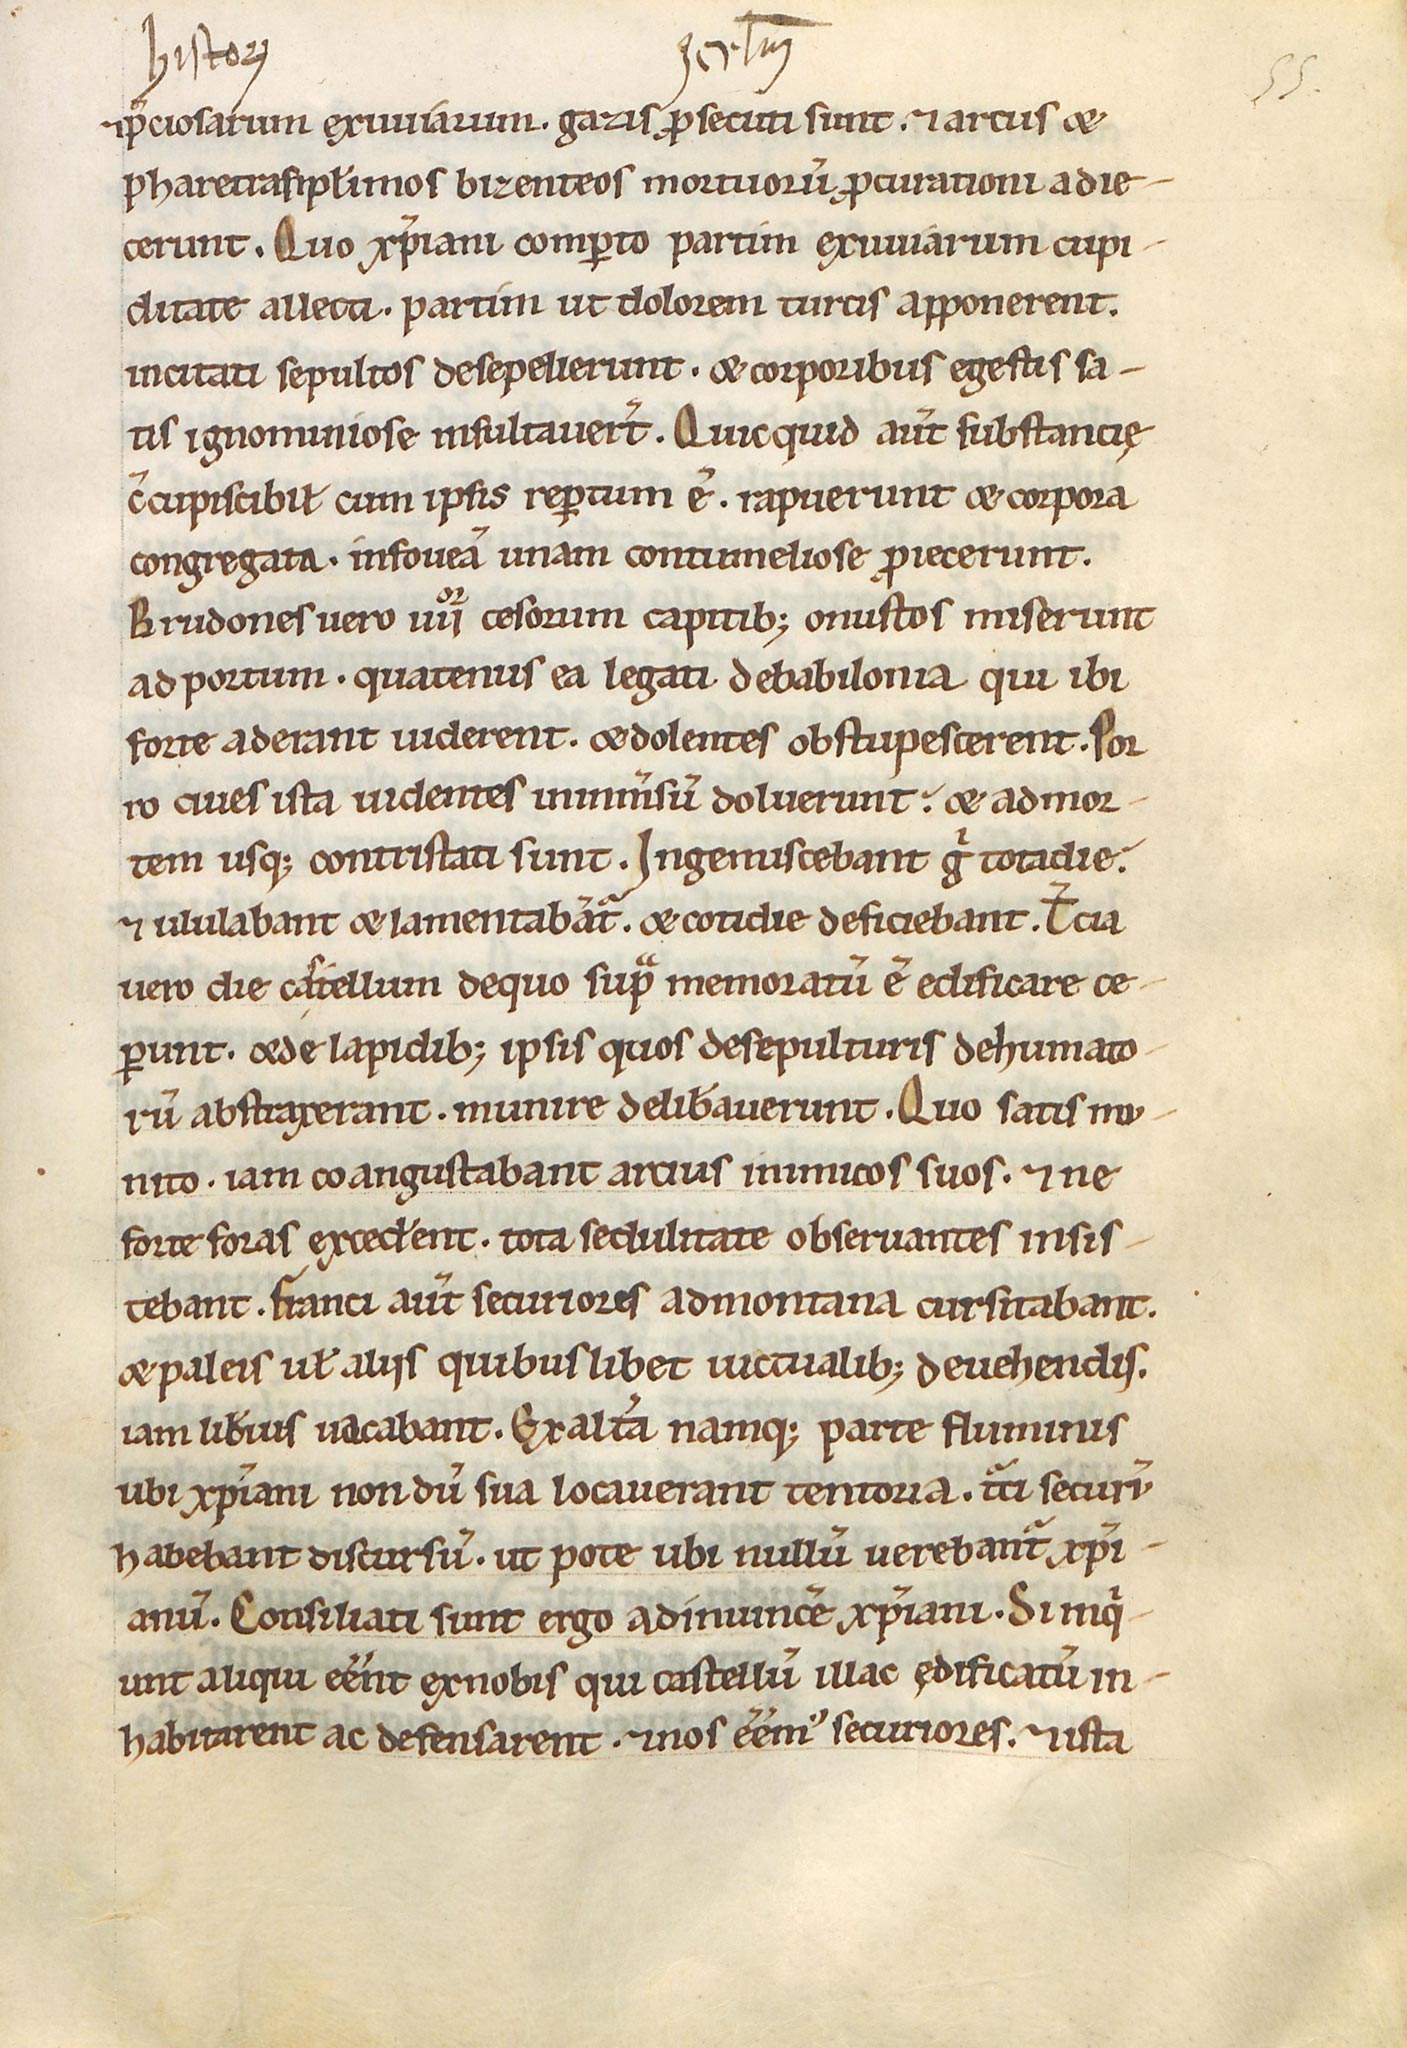 histori Jerlm
55.
⁊ p̄ciosarum exuuiarum. gazis ꝓsecuti sunt. ⁊ arcus &
pharetras ⁊ plimos bizenteos mortuorū ꝓcurationi adie-
cerunt. Quo xp̄iani comꝑto partim exuuiarum cupi-
ditate allecti. partim ut dolorem turcis apponerent.
incitati sepultos desepelierunt. & corporibus egestis sa-
tis ignominiose insultauer̄t. Quicquid aūt substancię
c̄cupiscibil̛ cum ipsis reꝑtum ē. rapuerunt & corpora
congregata. in foueā unam contumeliose ꝓiecerunt.
Burdones uero iiiior cesorum capitib; onustos miserunt
ad portum. quatenus ea legati de babilonia qui ibi
forte aderant uiderent. & dolentes obstupescerent. Por
ro ciues ista uidentes inmēsū doluerunt. & ad mor-
tem usq; contristati sunt. Ingemiscebant g̛ tota die.
⁊ ululabant & lamentabāt̛. & cotidie deficiebant. T̄cia
uero die castellum de quo supª memoratū ē edificare ce-
ꝑunt. & de lapidib; ipsis quos de sepulturis dehumato-
rū abstraxerant. munire delib̛auerunt. Quo satis mu-
nito. iam coangustabant arcius inimicos suos. ⁊ ne
forte foras exced̛ent. tota sedulitate obseruantes insis-
tebant. franci aūt securiores ad montana cursitabant.
& paleis ul̛ alijs quibuslibet uictualib; deuehendis.
iam lib̛ius uacabant. Ex alt̛a namq; parte fluminis
ubi xp̄iani nondū sua locauerant tentoria. t̛ci securū
habebant discursū. ut pote ubi nullū uerebant̛ xp̄i-
anū. Consiliati sunt ergo adinuincē xp̄iani. Si inq̛-
unt aliqui eēnt ex nobis qui castellū illac ędificatū in-
habitarent ac defensarent. ⁊ nos eēm᾽ securiores. ⁊ ista